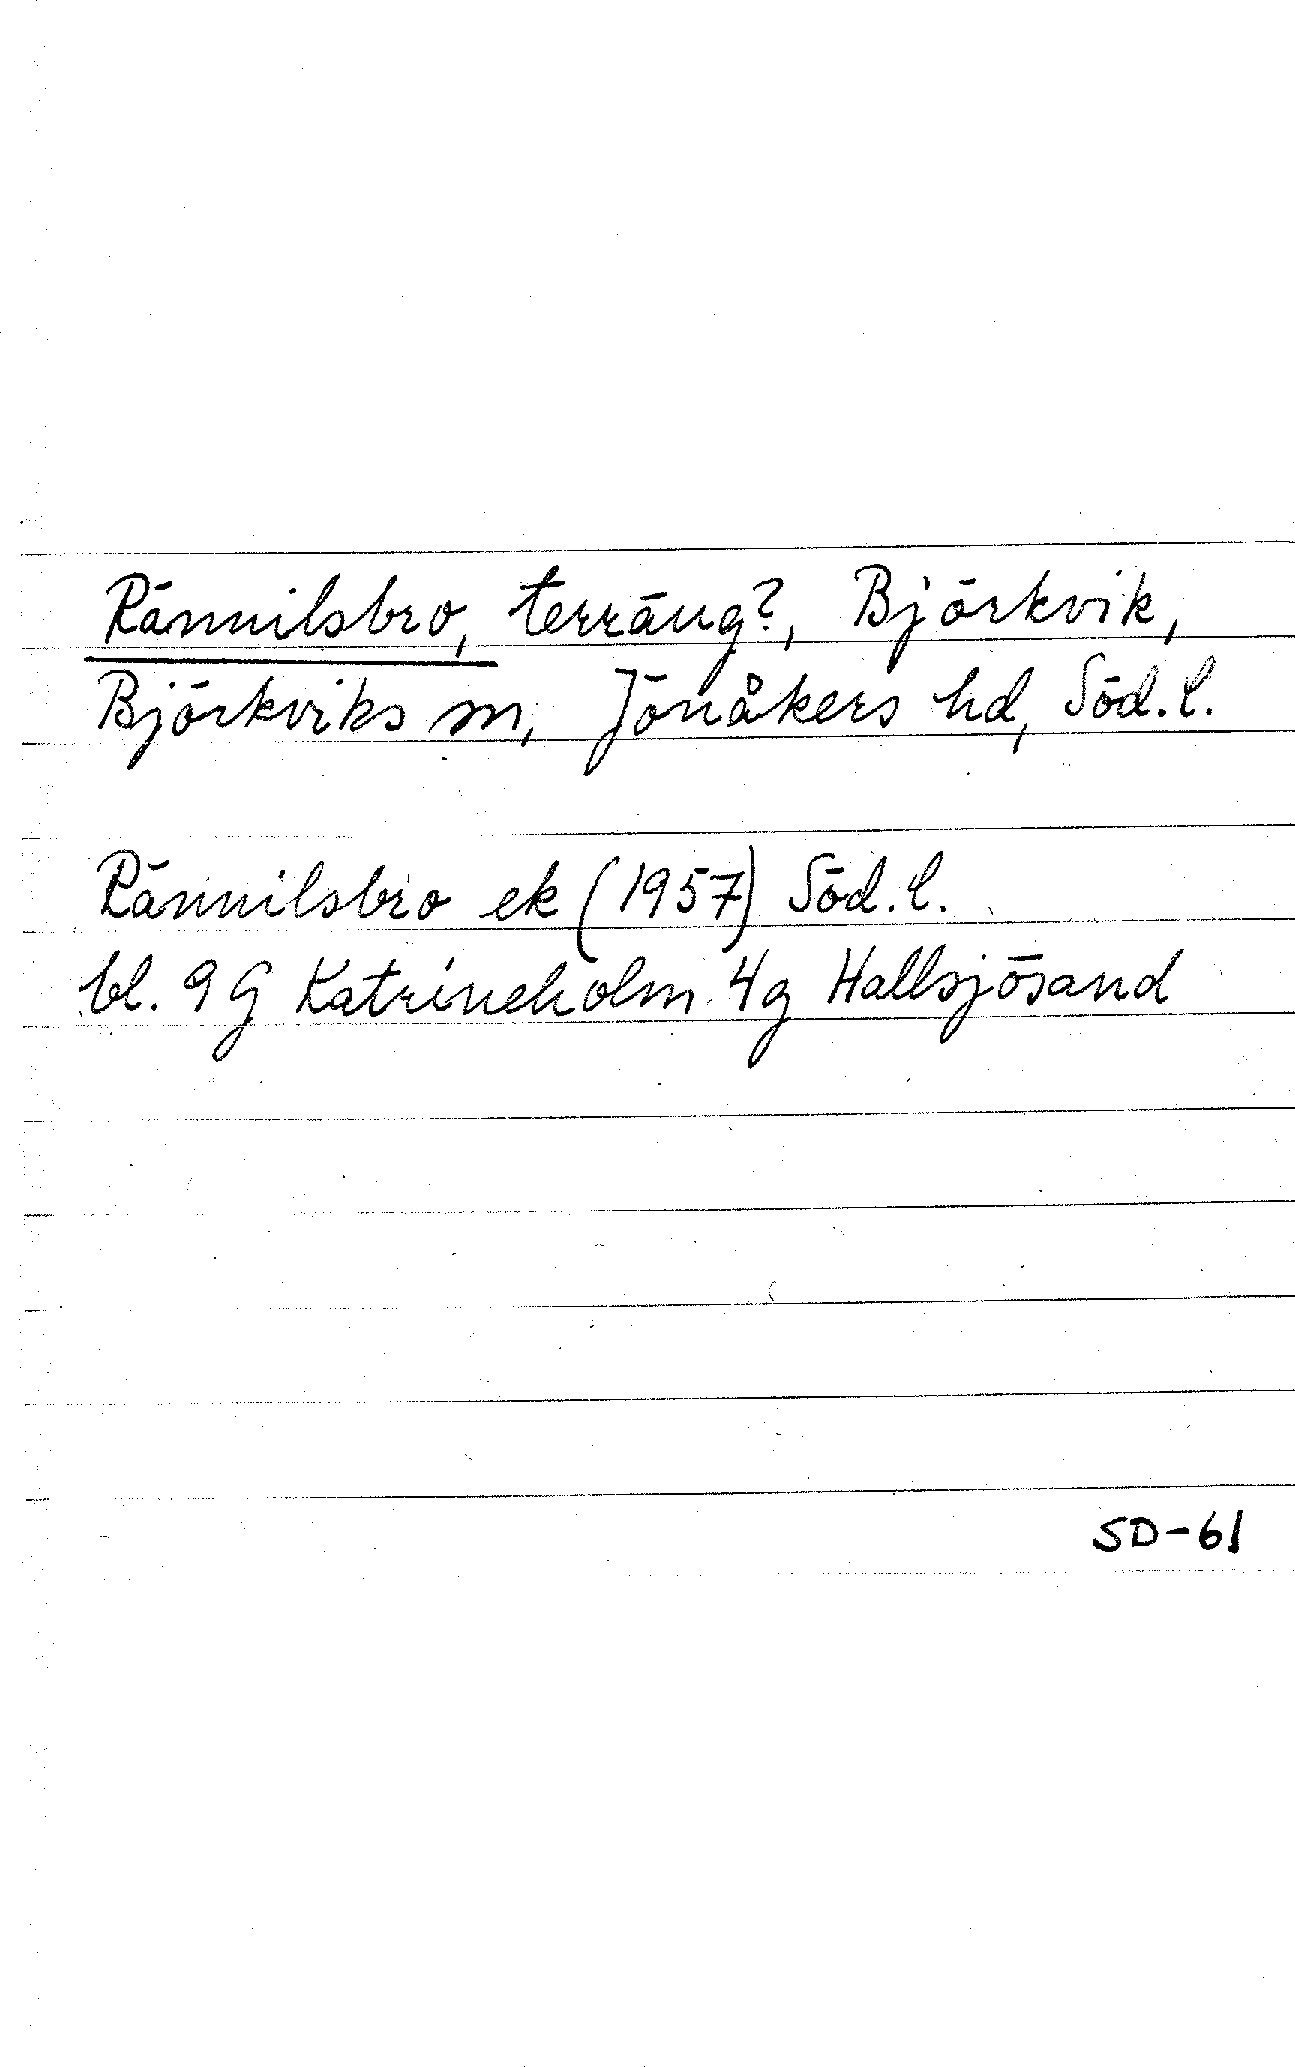 Rännilsbro, terräng?, Björkvik,
Björkviks sn, Jönåkers hd, Söd.l.
Rännilsbro ek (1957) Söd.l.
bl. 9G Katrineholm 4g Hallsjösand
SD-61